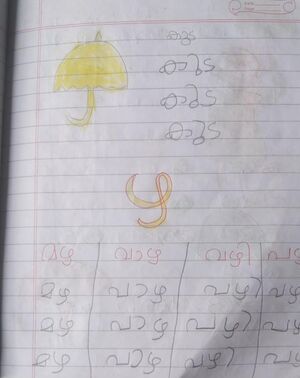 കുട
കുട
കുട
കുട
ഴ
മഴ വാഴ വഴി
മഴ വാഴ വഴി
മഴ വാഴ വഴി
മഴ വാഴ വഴി